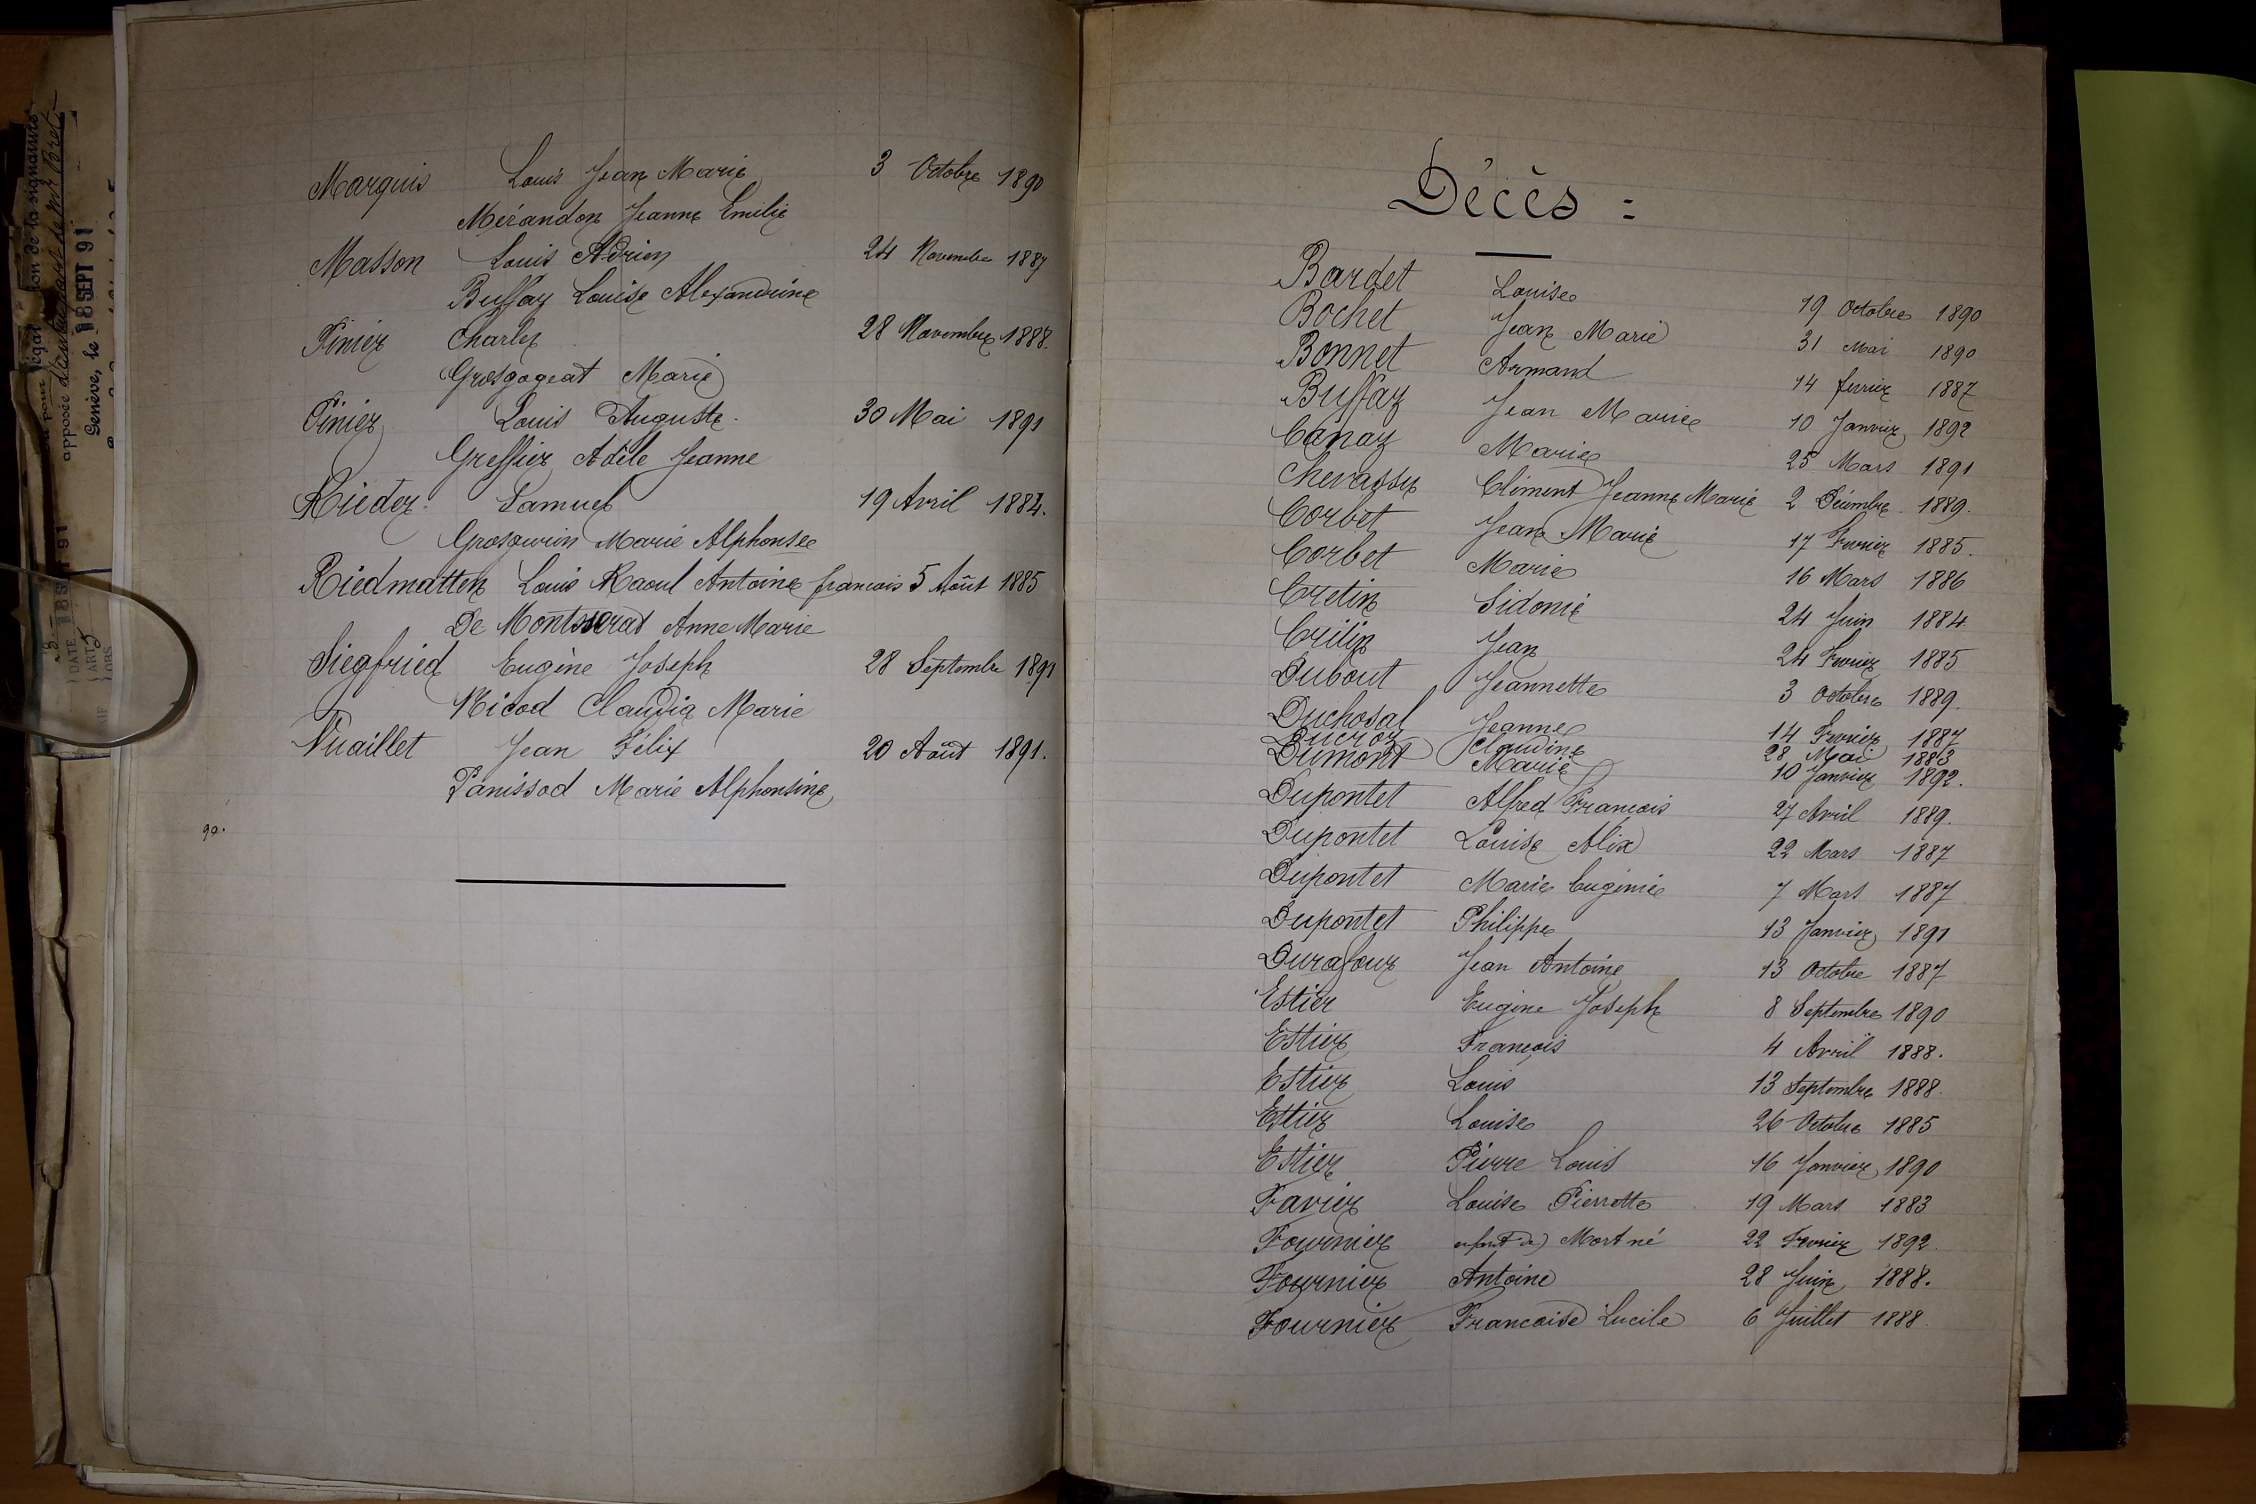 Marquis Louis Jean Marie 3 Octobre 1890
Mérandon Jeanne Emilie
Masson Louis Adrien 24 Novembre 1887
Buffay Louise Alexandrine
Pinier Charles 28 Novembre 1888.
Grosgogeat Marie
Pinier Louis Auguste. 30 Mai 1891
Greffier Adèle Jeanne
Rieder. Samuel 19 Avril 1884.
Grosgurin Marie Alphonsee
Riedmatten Louis Raoul Antoine francois 5 Août 1885
De Montserat Anne Marie
Siegfried Eugène Joseph 28 Septembre 1891
Nicod Claudia Marie
Vuaillet Jean Félix 20 Août 1891.
Panissod Marie Alphonsine
90.
Décès :
Bardet Louise 19 Octobre 1890
Bochet Jean Marie 31 Mai 1890
Bonnet Armand 14 fevrier 1887
Buffay Jean Marie 10 Janvier 1892
Canay Marie 25 Mars 1891
Chevassu Clément Jeanne Marie 2 Décembre 1889.
Corbet Jean Marie 17 Fevrier 1885.
Corbet Marie 16 Mars 1886
Cretin Sidonie 24 Juin 1884.
Critin Jean 24 Fevrier 1885
Dubout Jeannette 3 Octobre 1889.
Duchosal Jeanne 14 Fevrier 1887
Ducroz Claudine 28 Mai 1883
Dumont Marie 10 Janvier 1892.
Dupontet Alfred Francois 27 Avril 1889.
Dupontet Louise Alix 22 Mars 1887
Dupontet Marie Eugénie 7 Mars 1887
Dupontet Philippe 13 Janvier 1891
Durafour Jean Antoine 13 Octobre 1887
Estier Eugène Joseph 8 Septembre 1890
Estier Francois 4 Avril 1888.
Estier Louis 13 Septembre 1888.
Estier Louise 26 Octobre 1885
Estier Pierre Louis 16 Janvier 1890
Favier Louise Pierrette 19 Mars 1883
Fournier enfant de) Mort né 22 Fevrier 1892.
Fournier Antoine 28 Juin 1888.
Fournier Francoise Lucile 6 Juillet 1888.
on de la signature
apposée d'autre part de Mr Bret
Genève, le 18 SEPT 91
DATE
ART 5